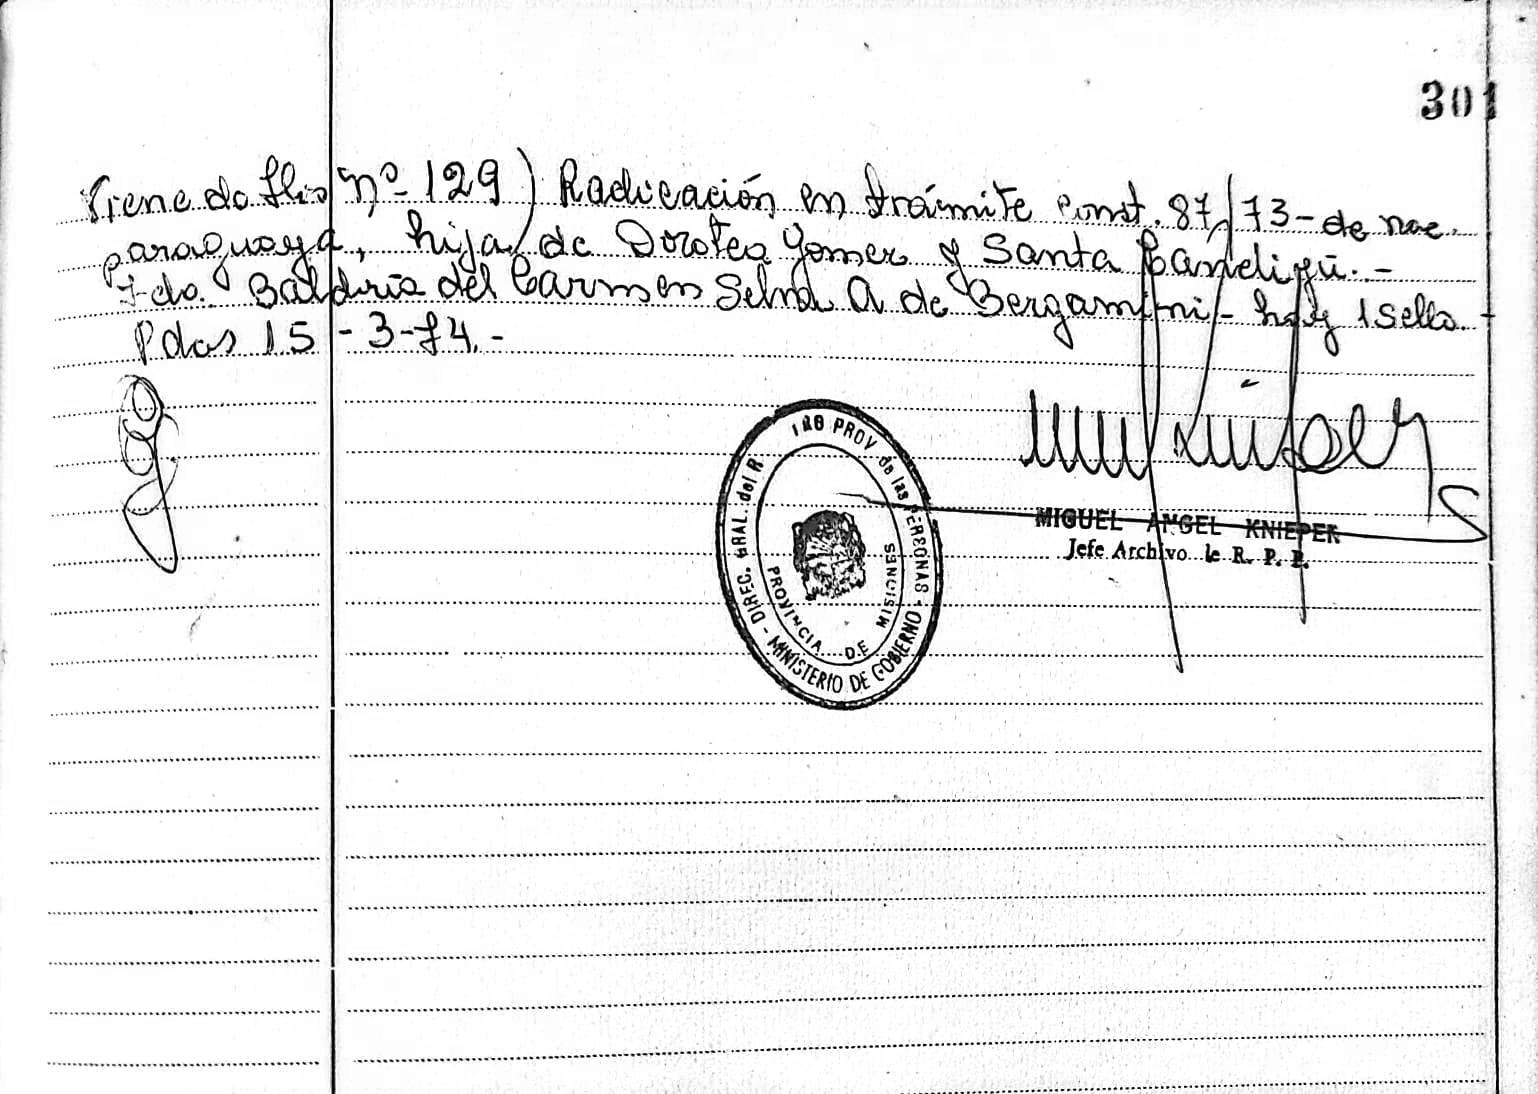 301
Viene do flio nº 129) Radicación en trámite const. 87/73 - de nac.
paraguaya, hija de Dorotea Gomez y Santa Candigü. -
Fdo. Baldiria del Carmen Selva A de Bergamini - hay 1 sello.
Pdas 15 - 3 - 74. -
DIREC. GRAL. del R PROV de las PERSONAS - MINISTERIO DE GOBIERNO -
PROVINCIA DE MISIONES
MIGUEL ANGEL KNIEPER
Jefe Archivo de R. P. P.